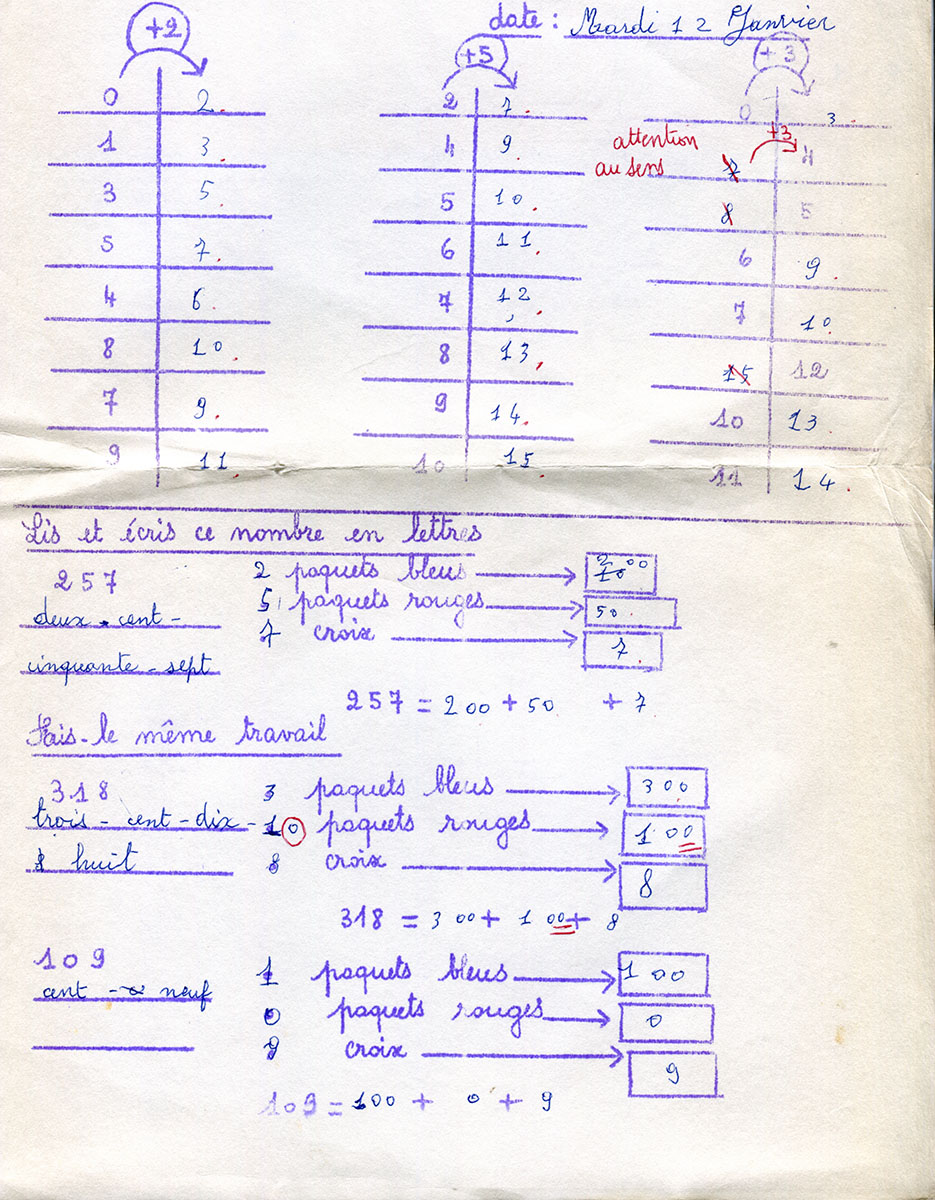 date : Mardi 12 Janvier
+2
0 2.
1 3.
3 5.
5 7.
4 6.
8 10.
7 9.
9 11.
+5
2 7.
4 9.
5 10.
6 11.
7 12.
8 13.
9 14.
10 15.
+3
0 3.
attention
au sens
+3
7 4
8 5
6 9.
7 10.
15 12
10 13.
11 14.
Lis et écris ce nombre en lettres
257
deux-cent-
cinquante-sept
2 paquets bleus 200
5 paquets rouges 50.
7 croix 7.
257 = 200 + 50 + 7
Fais-le même travail
318
trois-cent-dix-
huit
3 paquets bleus 300
10 paquets rouges 100
8 croix 8
318 = 300 + 100 + 8
109
cent - neuf
1 paquets bleus 100
0 paquets rouges 0
9 croix 9
109 = 100 + 0 + 9